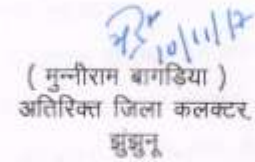 10/11/17
( मुन्नीराम बागडिया )
अतिरिक्त जिला कलक्टर,
झुंझुनू